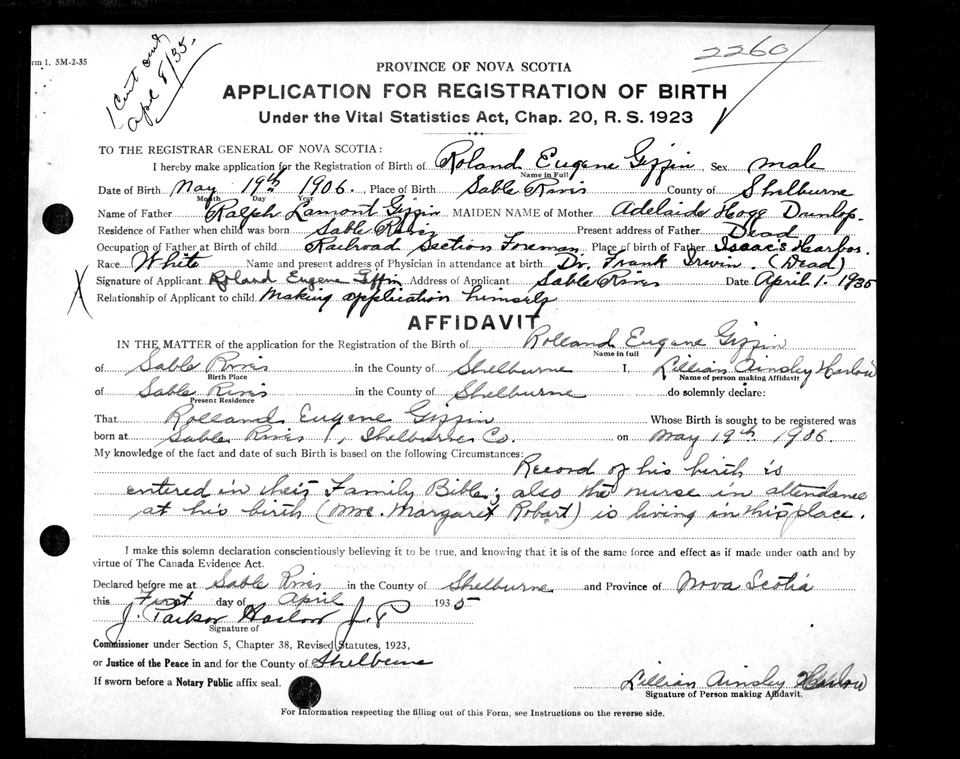 rm 1. 5M-2-35
1 Cert and
Apl 8/35
2260
PROVINCE OF NOVA SCOTIA
APPLICATION FOR REGISTRATION OF BIRTH
Under the Vital Statistics Act, Chap. 20, R. S. 1923
TO THE REGISTRAR GENERAL OF NOVA SCOTIA:
I hereby make application for the Registration of Birth of Roland Eugene Giffin Sex male
Name in Full
Date of Birth May 19th 1906. Place of Birth Sable River County of Shelburne
Month Day Year
Name of Father Ralph Lamont Giffin MAIDEN NAME of Mother Adelaide Hogg Dunlop.
Residence of Father when child was born Sable River Present address of Father Dead
Occupation of Father at Birth of child Railroad Section Foreman Place of birth of Father Isaac's Harbor.
Race White Name and present address of Physician in attendance at birth Dr. Frank Irwin. (Dead)
Signature of Applicant Roland Eugene Giffin Address of Applicant Sable River Date April 1. 1935
Relationship of Applicant to child Making application himself
AFFIDAVIT
IN THE MATTER of the application for the Registration of the Birth of Rolland Eugene Giffin
Name in full
of Sable River in the County of Shelburne I, Lillian Ainsley Harlow
Birth Place Name of person making Affidavit
of Sable River in the County of Shelburne do solemnly declare:
Present Residence
That Rolland Eugene Giffin Whose Birth is sought to be registered was
born at Sable River, Shelburne Co. on May 19th 1906.
My knowledge of the fact and date of such Birth is based on the following Circumstances:
Record of his birth is
entered in their Family Bible; also the nurse in attendance
at his birth (Mrs. Margaret Robart) is living in this place.
I make this solemn declaration conscientiously believing it to be true, and knowing that it is of the same force and effect as if made under oath and by
virtue of The Canada Evidence Act.
Declared before me at Sable River in the County of Shelburne and Province of Nova Scotia
this First day of April 1935
J. Parker Harlow J. P.
Signature of
Commissioner under Section 5, Chapter 38, Revised Statutes, 1923,
or Justice of the Peace in and for the County of Shelburne
If sworn before a Notary Public affix seal.
Lillian Ainsley Harlow
Signature of Person making Affidavit.
For Information respecting the filling out of this Form, see Instructions on the reverse side.